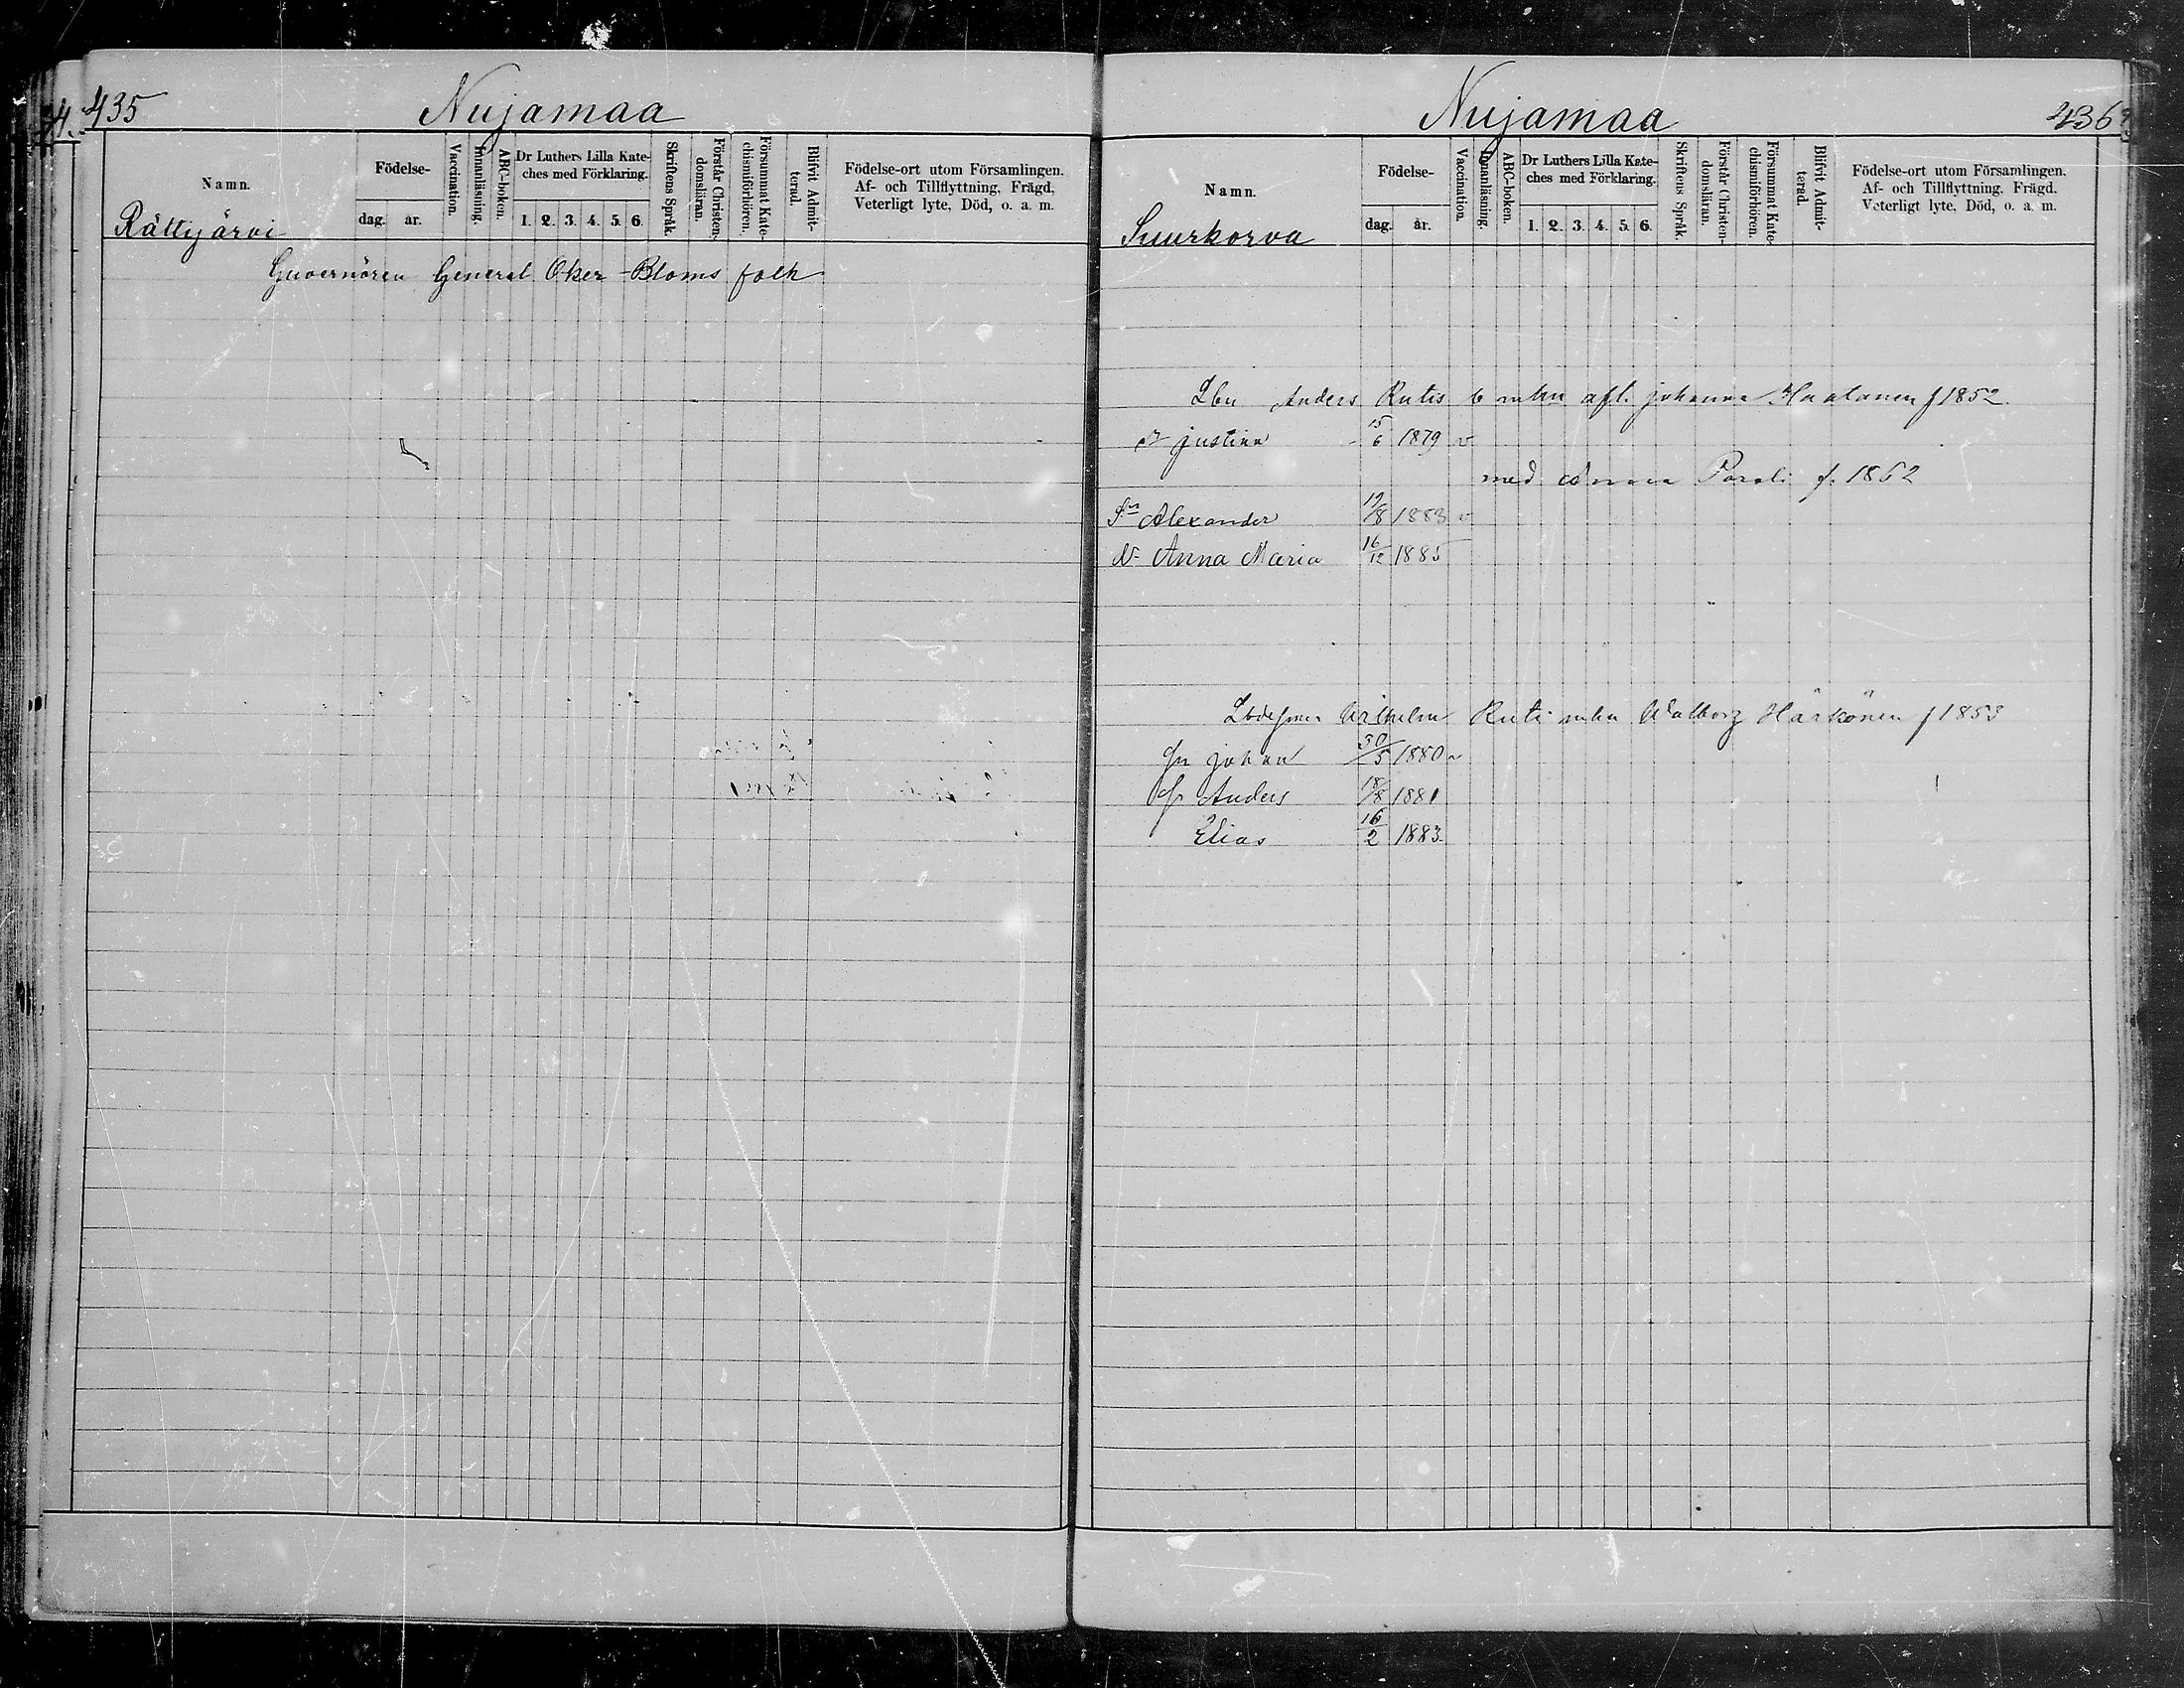 435
Nujamaa
Namn.
Födelse-
dag.
år.
Vaccination.
Innanläsning.
ABC-boken.
Dr Luthers Lilla Kate-
ches med Förklaring.
1. 2. 3. 4. 5. 6.
Skriftens Språk.
Förstår Christen-
domsläran.
Försummat Kate-
chismiförhören.
Blifvit Admit-
terad.
Födelse-ort utom Församlingen.
Af- och Tillflyttning, Frägd,
Veterligt lyte, Död, o. a. m.
Rättijärvi
Guvernören General Oker-Bloms folk
Nujamaa
436
Namn.
Födelse-
dag.
år.
Vaccination.
Innanläsning.
ABC-boken.
Dr Luthers Lilla Kate-
ches med Förklaring.
1. 2. 3. 4. 5. 6.
Skriftens Språk.
Förstår Christen-
domsläran.
Försummat Kate-
chismiförhören.
Blifvit Admit-
terad.
Födelse-ort utom Församlingen.
Af- och Tillflyttning, Frägd.
Veterligt lyte, Död, o. a. m.
Suurkorva
Anders Rutis afl. johanna f 1852.
justina 15/6 1879 v
med Anna f. 1862
Sn Alexander 19/8 1883 v
Dr Anna Maria 16/12 1885
Wilhelm Ruti mhu Walborg Härkönen f 1853
Sn johan 30/5 1880 v
Anders 18/8 1881
Elias 16/2 1883.